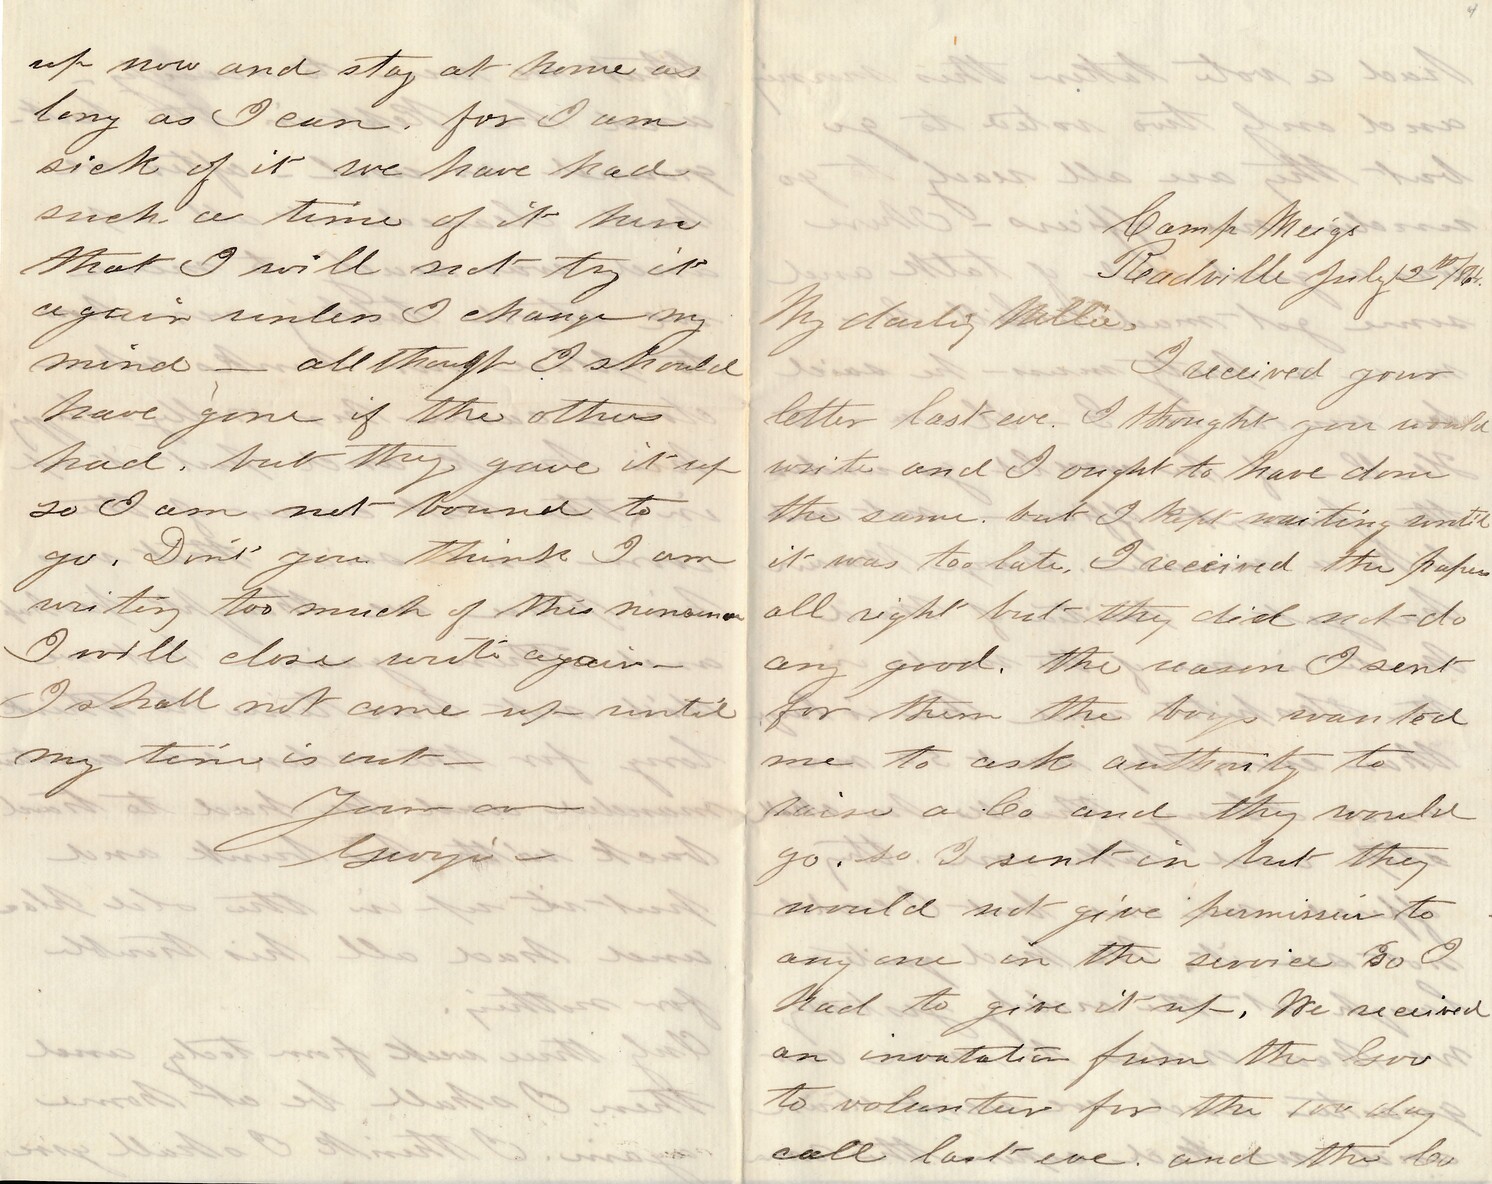 Camp Meigs
Readville July 12th/64.
My darling Nellie,
I received your
letter last eve. I thought you would
write and I ought to have done
the same. but I kept waiting until
it was too late. I received the papers
all right but they did not do
any good. the reason I sent
for them the boys wanted
me to ask authority to
raise a Co and they would
go. so I sent in but they
would not give permission to
any one in the service So I
had to give it up. We received
an invatation from the Gov
to volunteer for the 100 day
call last eve. and the Co
up now and stay at home as
long as I can. for I am
sick of it we have had
such a time of it here
that I will not try it
again unless I change my
mind — allthough I should
have gone if the others
had. but they gave it up
so I am not bound to
go. Don't you think I am
writing too much of this nonsense
I will close write again —
I shall not come up until
my time is out —
Yours
Georgie